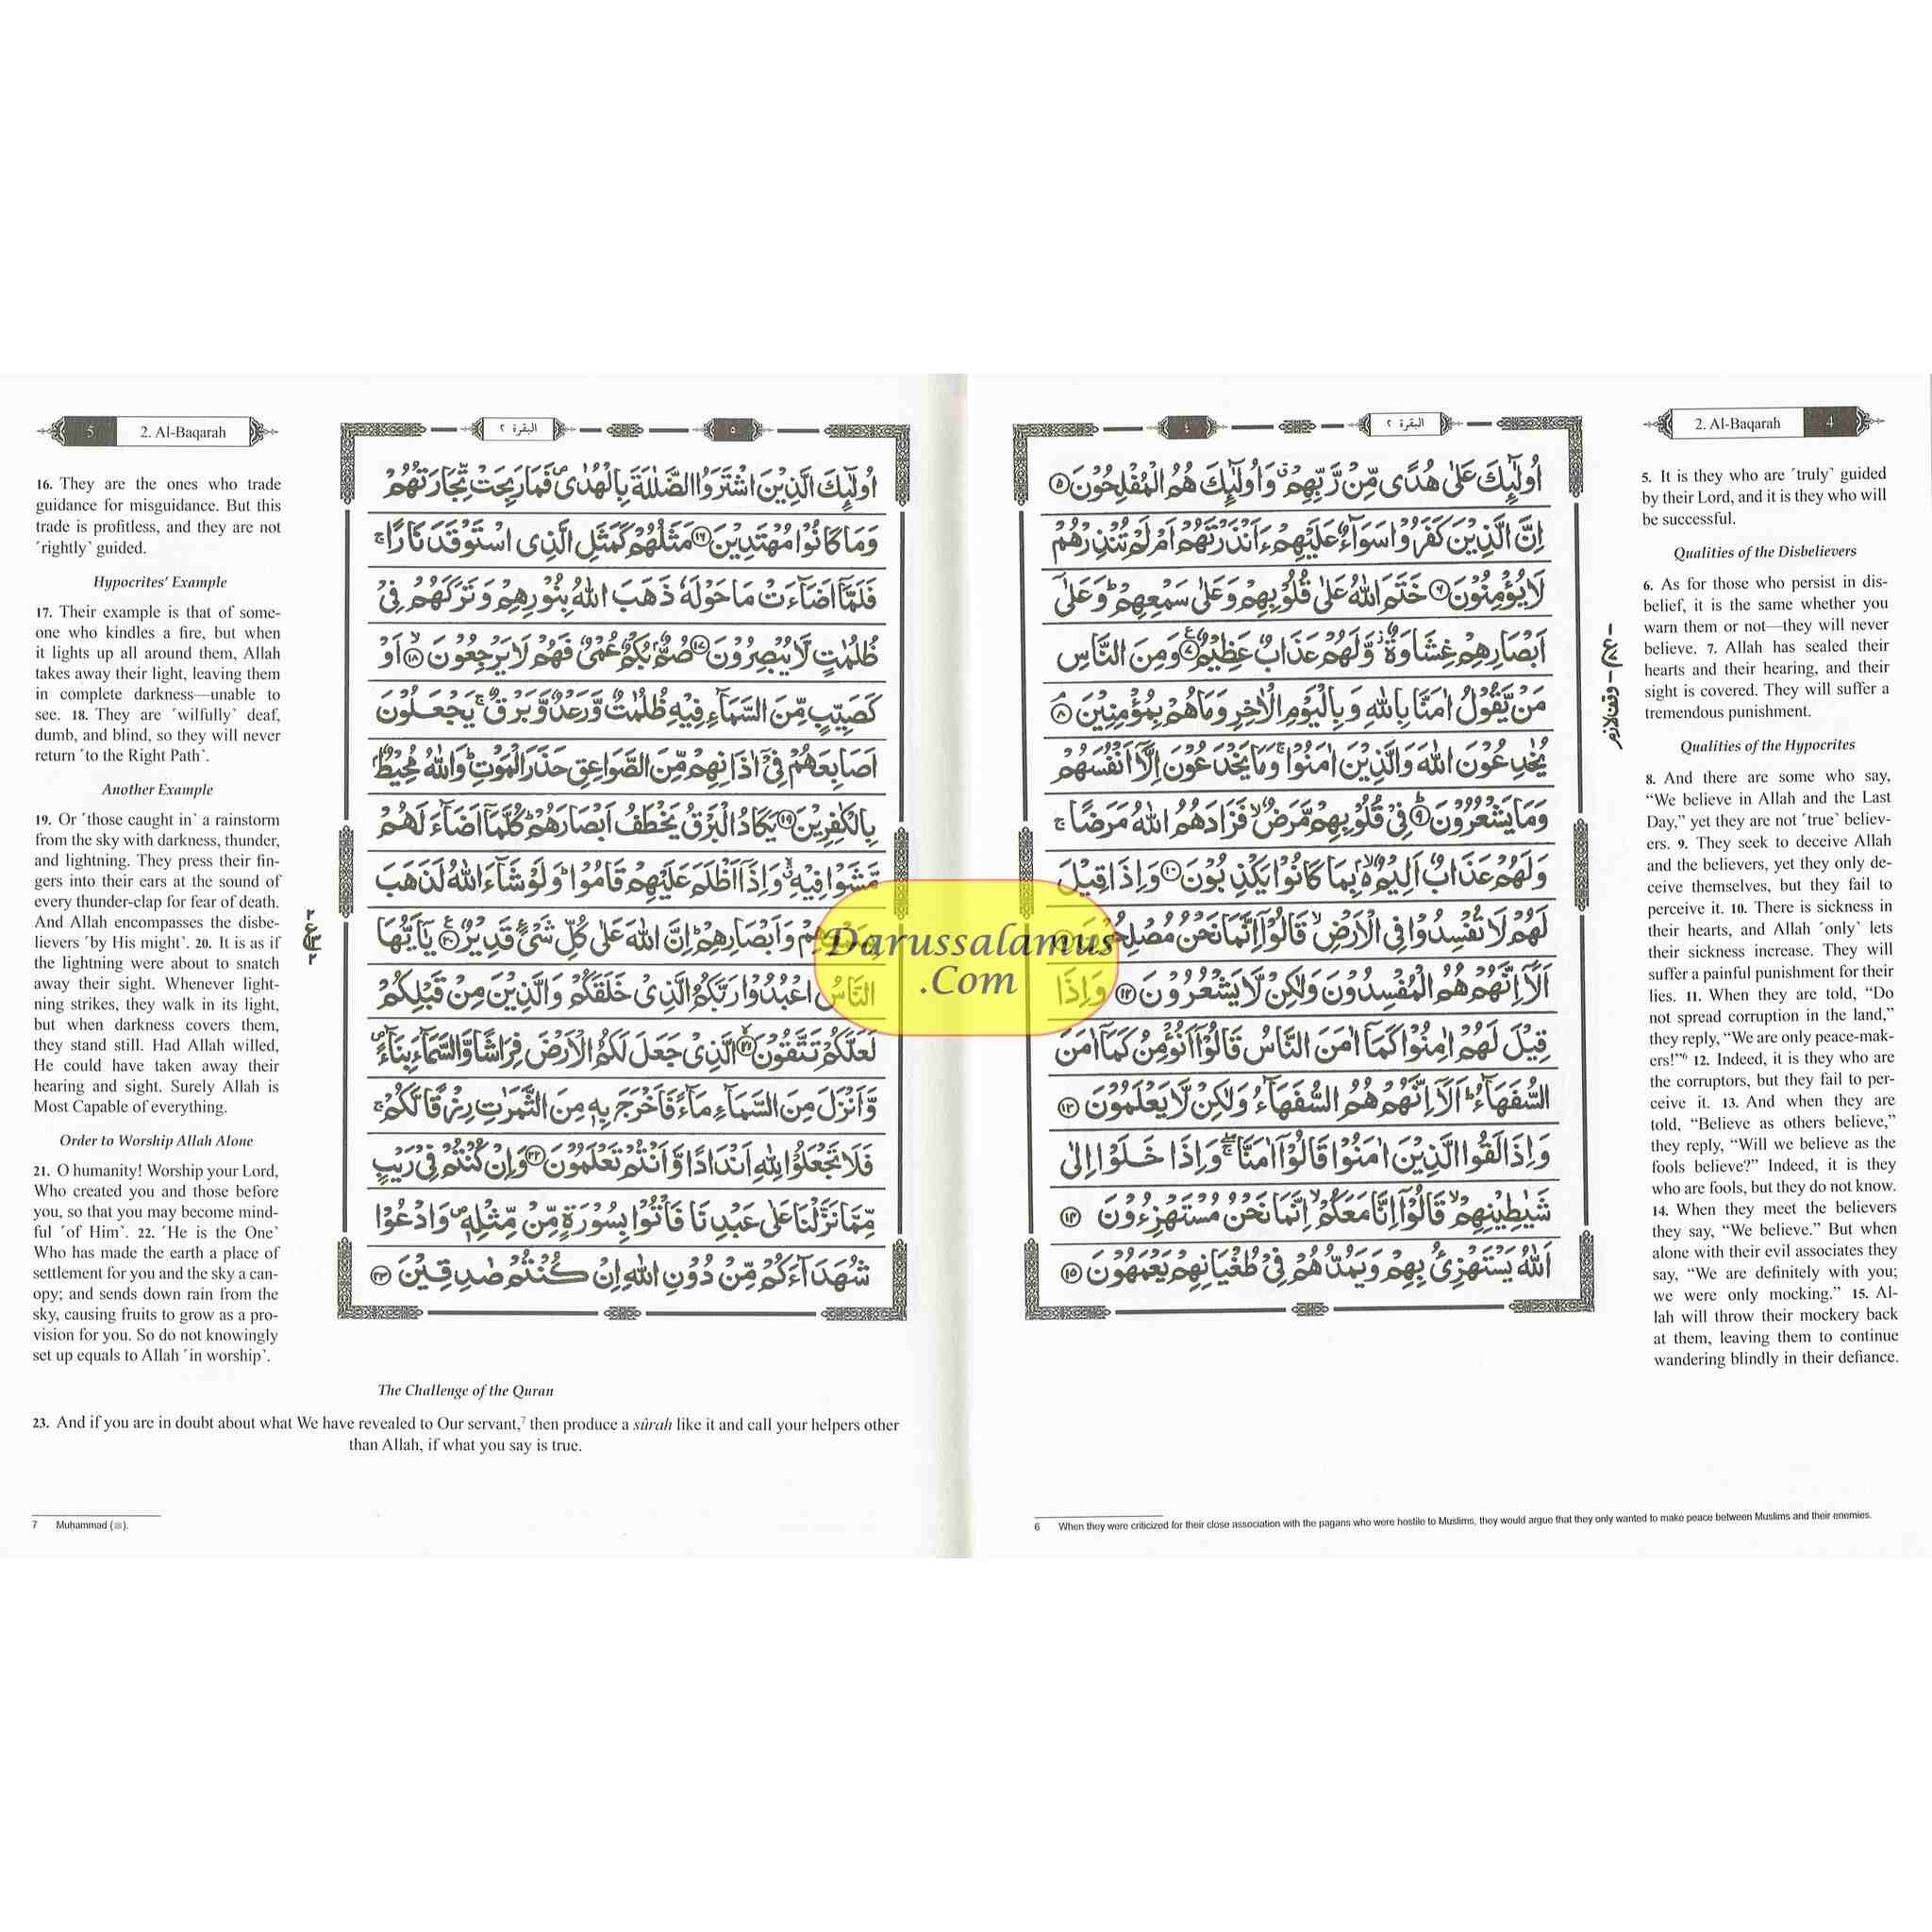 2. Al-Baqarah 4
البقرة ٢
٤
اُولٰٓئِكَ عَلٰى هُدًى مِّنْ رَّبِّهِمْ ۙ وَاُولٰٓئِكَ هُمُ الْمُفْلِحُوْنَ ٥
اِنَّ الَّذِيْنَ كَفَرُوْا سَوَآءٌ عَلَيْهِمْ ءَاَنْذَرْتَهُمْ اَمْ لَمْ تُنْذِرْهُمْ
لَا يُؤْمِنُوْنَ ٦ خَتَمَ اللّٰهُ عَلٰى قُلُوْبِهِمْ وَعَلٰى سَمْعِهِمْ ؕ وَعَلٰٓى
اَبْصَارِهِمْ غِشَاوَةٌ ۫ وَّلَهُمْ عَذَابٌ عَظِيْمٌ ٧ وَمِنَ النَّاسِ
مَنْ يَّقُوْلُ اٰمَنَّا بِاللّٰهِ وَبِالْيَوْمِ الْاٰخِرِ وَمَا هُمْ بِمُؤْمِنِيْنَ ٨
يُخٰدِعُوْنَ اللّٰهَ وَالَّذِيْنَ اٰمَنُوْا ۚ وَمَا يَخْدَعُوْنَ اِلَّآ اَنْفُسَهُمْ
وَمَا يَشْعُرُوْنَ ٩ فِيْ قُلُوْبِهِمْ مَّرَضٌ ۙ فَزَادَهُمُ اللّٰهُ مَرَضًا ۚ
وَلَهُمْ عَذَابٌ اَلِيْمٌۢ ۙ بِمَا كَانُوْا يَكْذِبُوْنَ ١٠ وَاِذَا قِيْلَ
لَهُمْ لَا تُفْسِدُوْا فِى الْاَرْضِ ۙ قَالُوْٓا اِنَّمَا نَحْنُ مُصْلِحُوْنَ
اَلَآ اِنَّهُمْ هُمُ الْمُفْسِدُوْنَ وَلٰكِنْ لَّا يَشْعُرُوْنَ ١٢ وَاِذَا
قِيْلَ لَهُمْ اٰمِنُوْا كَمَآ اٰمَنَ النَّاسُ قَالُوْٓا اَنُؤْمِنُ كَمَآ اٰمَنَ
السُّفَهَآءُ ؕ اَلَآ اِنَّهُمْ هُمُ السُّفَهَآءُ وَلٰكِنْ لَّا يَعْلَمُوْنَ ١٣
وَاِذَا لَقُوا الَّذِيْنَ اٰمَنُوْا قَالُوْٓا اٰمَنَّا ۖۚ وَاِذَا خَلَوْا اِلٰى
شَيٰطِيْنِهِمْ ۙ قَالُوْٓا اِنَّا مَعَكُمْ ۙ اِنَّمَا نَحْنُ مُسْتَهْزِءُوْنَ ١٤
اَللّٰهُ يَسْتَهْزِئُ بِهِمْ وَيَمُدُّهُمْ فِيْ طُغْيَانِهِمْ يَعْمَهُوْنَ ١٥
وقف لازم
5. It is they who are ˹truly˺ guided
by their Lord, and it is they who will
be successful.
Qualities of the Disbelievers
6. As for those who persist in dis-
belief, it is the same whether you
warn them or not—they will never
believe. 7. Allah has sealed their
hearts and their hearing, and their
sight is covered. They will suffer a
tremendous punishment.
Qualities of the Hypocrites
8. And there are some who say,
“We believe in Allah and the Last
Day,” yet they are not ˹true˺ believ-
ers. 9. They seek to deceive Allah
and the believers, yet they only de-
ceive themselves, but they fail to
perceive it. 10. There is sickness in
their hearts, and Allah ˹only˺ lets
their sickness increase. They will
suffer a painful punishment for their
lies. 11. When they are told, “Do
not spread corruption in the land,”
they reply, “We are only peace-mak-
ers!”6 12. Indeed, it is they who are
the corruptors, but they fail to per-
ceive it. 13. And when they are
told, “Believe as others believe,”
they reply, “Will we believe as the
fools believe?” Indeed, it is they
who are fools, but they do not know.
14. When they meet the believers
they say, “We believe.” But when
alone with their evil associates they
say, “We are definitely with you;
we were only mocking.” 15. Al-
lah will throw their mockery back
at them, leaving them to continue
wandering blindly in their defiance.
6 When they were criticized for their close association with the pagans who were hostile to Muslims, they would argue that they only wanted to make peace between Muslims and their enemies.
5 2. Al-Baqarah
البقرة ٢
٥
اُولٰٓئِكَ الَّذِيْنَ اشْتَرَوُا الضَّلٰلَةَ بِالْهُدٰى ۪ فَمَا رَبِحَتْ تِّجَارَتُهُمْ
وَمَا كَانُوْا مُهْتَدِيْنَ ١٦ مَثَلُهُمْ كَمَثَلِ الَّذِى اسْتَوْقَدَ نَارًا ۚ
فَلَمَّآ اَضَآءَتْ مَا حَوْلَهٗ ذَهَبَ اللّٰهُ بِنُوْرِهِمْ وَتَرَكَهُمْ فِيْ
ظُلُمٰتٍ لَّا يُبْصِرُوْنَ ١٧ صُمٌّۢ بُكْمٌ عُمْيٌ فَهُمْ لَا يَرْجِعُوْنَ ۙ ١٨ اَوْ
كَصَيِّبٍ مِّنَ السَّمَآءِ فِيْهِ ظُلُمٰتٌ وَّرَعْدٌ وَّبَرْقٌ ۚ يَجْعَلُوْنَ
اَصَابِعَهُمْ فِيْٓ اٰذَانِهِمْ مِّنَ الصَّوَاعِقِ حَذَرَ الْمَوْتِ ؕ وَاللّٰهُ مُحِيْطٌۢ
بِالْكٰفِرِيْنَ ١٩ يَكَادُ الْبَرْقُ يَخْطَفُ اَبْصَارَهُمْ ؕ كُلَّمَآ اَضَآءَ لَهُمْ
مَّشَوْا فِيْهِ ۙ وَاِذَآ اَظْلَمَ عَلَيْهِمْ قَامُوْا ؕ وَلَوْ شَآءَ اللّٰهُ لَذَهَبَ
وَاَبْصَارِهِمْ ؕ اِنَّ اللّٰهَ عَلٰى كُلِّ شَيْءٍ قَدِيْرٌ ٢٠ يٰٓاَيُّهَا
النَّاسُ اعْبُدُوْا رَبَّكُمُ الَّذِيْ خَلَقَكُمْ وَالَّذِيْنَ مِنْ قَبْلِكُمْ
لَعَلَّكُمْ تَتَّقُوْنَ ۙ ٢١ الَّذِيْ جَعَلَ لَكُمُ الْاَرْضَ فِرَاشًا وَّالسَّمَآءَ بِنَآءً ۪
وَّاَنْزَلَ مِنَ السَّمَآءِ مَآءً فَاَخْرَجَ بِهٖ مِنَ الثَّمَرٰتِ رِزْقًا لَّكُمْ ۚ
فَلَا تَجْعَلُوْا لِلّٰهِ اَنْدَادًا وَّاَنْتُمْ تَعْلَمُوْنَ ٢٢ وَاِنْ كُنْتُمْ فِيْ رَيْبٍ
مِّمَّا نَزَّلْنَا عَلٰى عَبْدِنَا فَاْتُوْا بِسُوْرَةٍ مِّنْ مِّثْلِهٖ ۪ وَادْعُوْا
شُهَدَآءَكُمْ مِّنْ دُوْنِ اللّٰهِ اِنْ كُنْتُمْ صٰدِقِيْنَ ٢٣
16. They are the ones who trade
guidance for misguidance. But this
trade is profitless, and they are not
˹rightly˺ guided.
Hypocrites’ Example
17. Their example is that of some-
one who kindles a fire, but when
it lights up all around them, Allah
takes away their light, leaving them
in complete darkness—unable to
see. 18. They are ˹wilfully˺ deaf,
dumb, and blind, so they will never
return ˹to the Right Path˺.
Another Example
19. Or ˹those caught in˺ a rainstorm
from the sky with darkness, thunder,
and lightning. They press their fin-
gers into their ears at the sound of
every thunder-clap for fear of death.
And Allah encompasses the disbe-
lievers ˹by His might˺. 20. It is as if
the lightning were about to snatch
away their sight. Whenever light-
ning strikes, they walk in its light,
but when darkness covers them,
they stand still. Had Allah willed,
He could have taken away their
hearing and sight. Surely Allah is
Most Capable of everything.
Order to Worship Allah Alone
21. O humanity! Worship your Lord,
Who created you and those before
you, so that you may become mind-
ful ˹of Him˺. 22. ˹He is the One˺
Who has made the earth a place of
settlement for you and the sky a can-
opy; and sends down rain from the
sky, causing fruits to grow as a pro-
vision for you. So do not knowingly
set up equals to Allah ˹in worship˺.
The Challenge of the Quran
23. And if you are in doubt about what We have revealed to Our servant,7 then produce a sûrah like it and call your helpers other
than Allah, if what you say is true.
7 Muḥammad (ﷺ).
Darussalamus
.Com